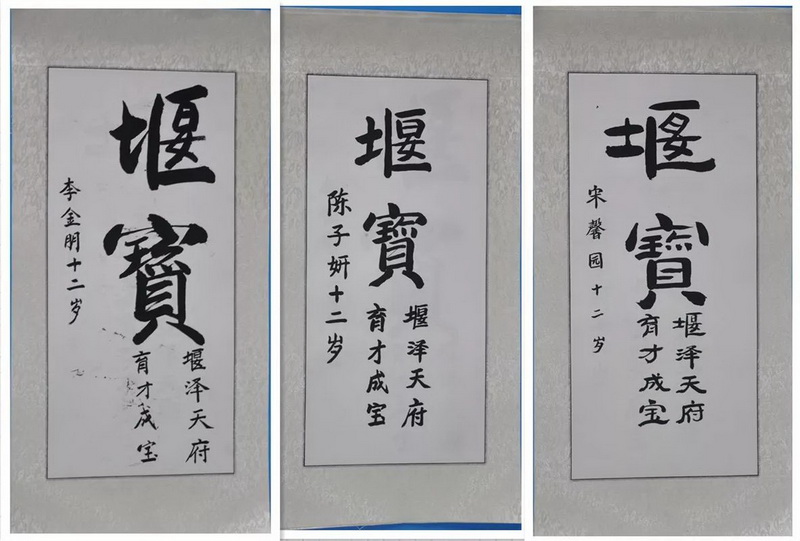 堰寶
堰泽天府
育才成宝
李金明十二岁
堰寶
堰泽天府
育才成宝
陈子妍十二岁
堰寶
堰泽天府
育才成宝
宋馨园十二岁